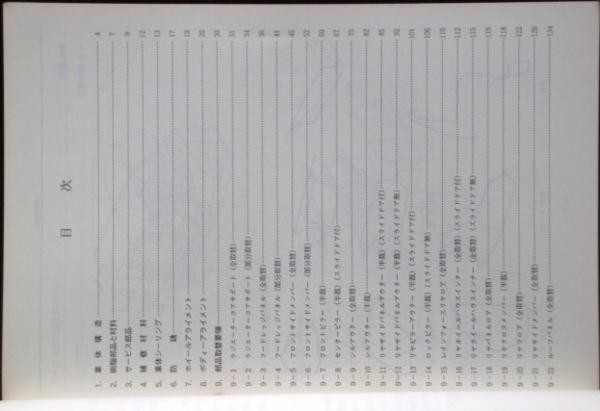 目次
1. 車体構造 4
2. 樹脂部品と材料 7
3. サービス部品 9
4. 補修材料 12
5. 車体シーリング 13
6. 防錆 17
7. ホイールアライメント 19
8. ボディーアライメント 20
9. 部品取替要領 30
9－1 ラジエーターコアサポート（全取替） 31
9－2 ラジエーターコアサポート（部分取替） 34
9－3 フードレッジパネル（全取替） 36
9－4 フードレッジパネル（部分取替） 41
9－5 フロントサイドメンバー（全取替） 45
9－6 フロントサイドメンバー（部分取替） 52
9－7 フロントピラー（半裁） 60
9－8 センターピラー（半裁）（スライドドア付） 67
9－9 シルアウター（全取替） 75
9－10 シルアウター（半裁） 82
9－11 リヤサイドパネルアウター（半裁）（スライドドア付） 85
9－12 リヤサイドパネルアウター（半裁）（スライドドア無） 92
9－13 リヤピラーアウター（半裁）（スライドドア付） 101
9－14 ロックピラー（半裁）（スライドドア無） 106
9－15 レインフォースリヤフロア（全取替） 110
9－16 リヤホイールハウスインナー（全取替）（スライドドア付） 112
9－17 リヤホイールハウスインナー（全取替）（スライドドア無） 115
9－18 リヤパネルロア（全取替） 116
9－19 リヤクロスメンバー（半裁） 118
9－20 リヤフロア（全取替） 122
9－21 リヤサイドメンバー（全取替） 126
9－22 ルーフパネル（全取替） 134